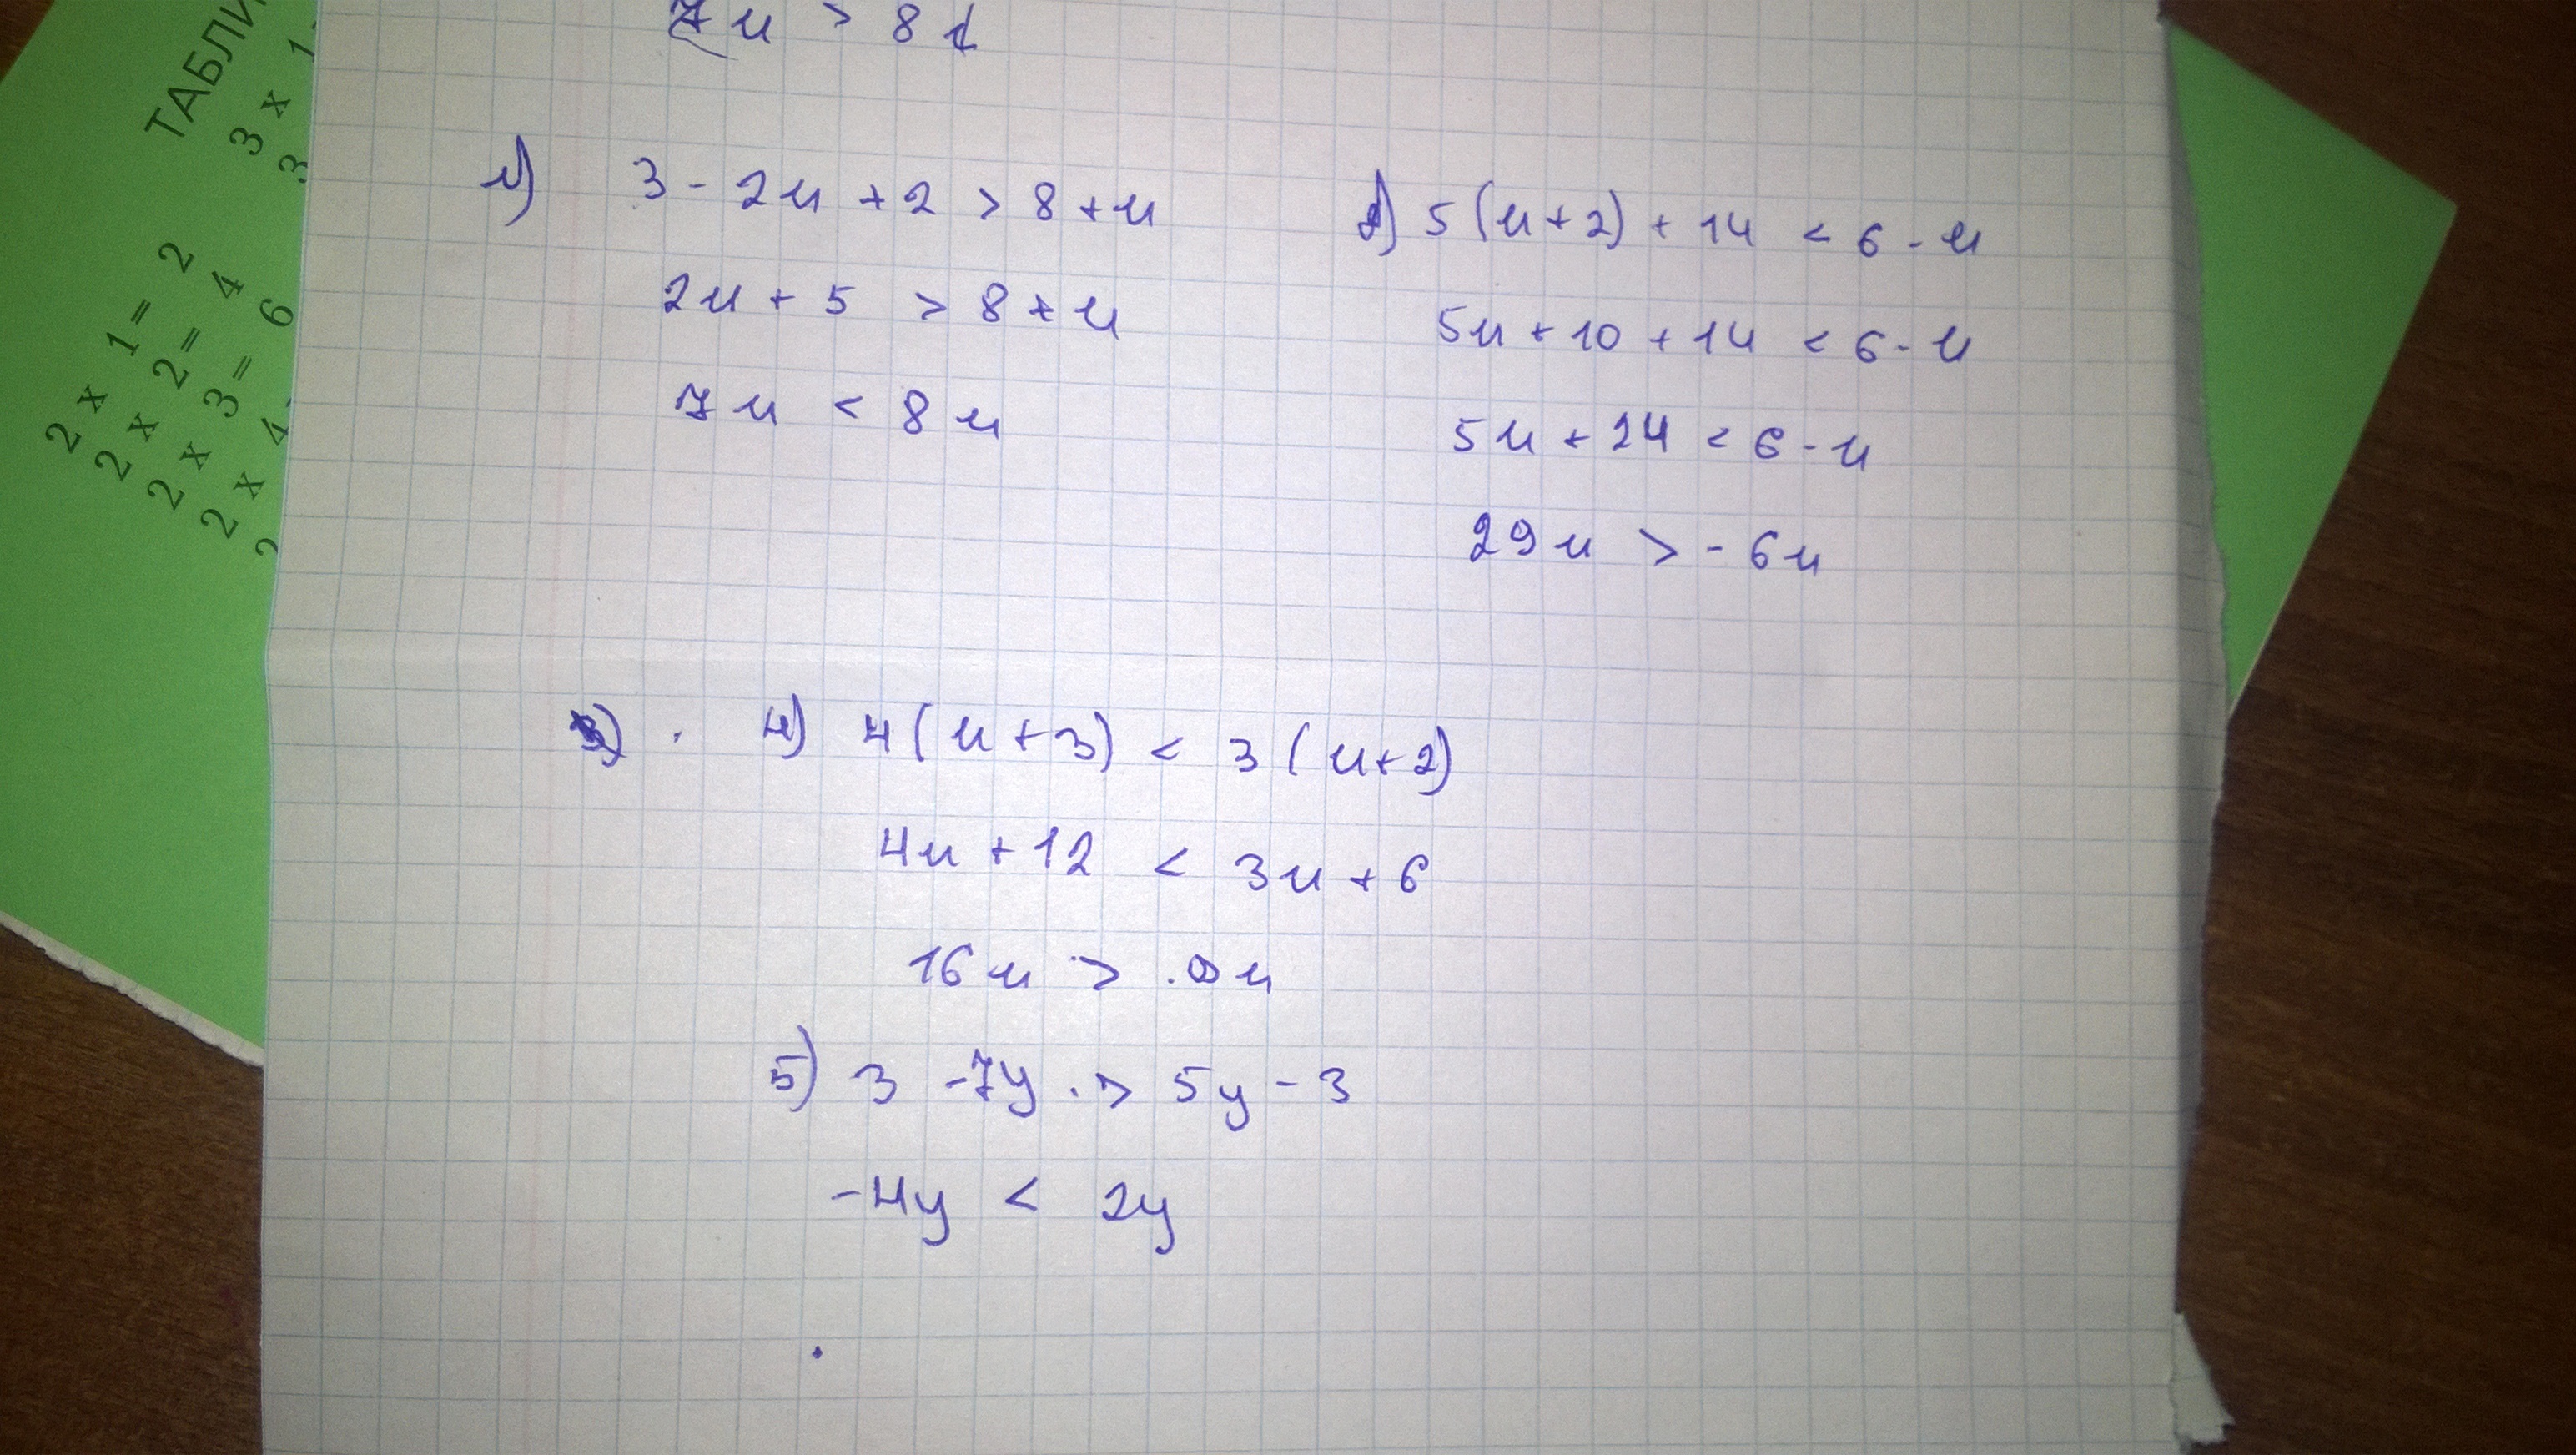 7u > 8
1) 3 - 2u + 2 > 8 + u
2u + 5 > 8 + u
7u < 8u
5(u+2) + 14 < 6 - u
5u + 10 + 14 < 6 - u
5u + 24 < 6 - u
29u > - 6u
4) 4(u+3) < 3(u+2)
4u + 12 < 3u + 6
16u > u
5) 3 - 7y > 5y - 3
-4y < 2y
ТАБЛИ
3 x 1
3
2 x 1= 2
2 x 2= 4
2 x 3= 6
2 x 4
2